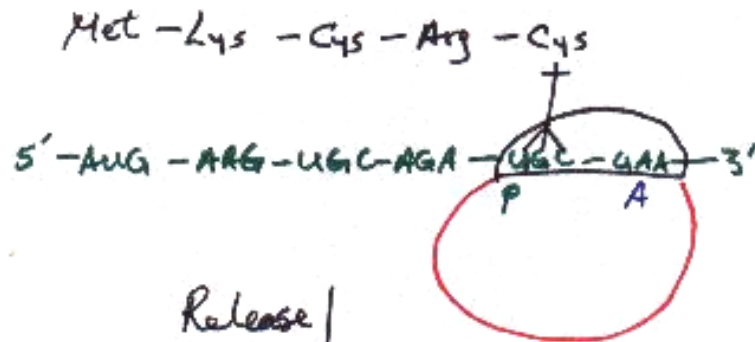 Met - Lys - Cys - Arg - Cys
5' - AUG - AAG - UGC - AGA - UGC - GAA - 3'
P A
Release